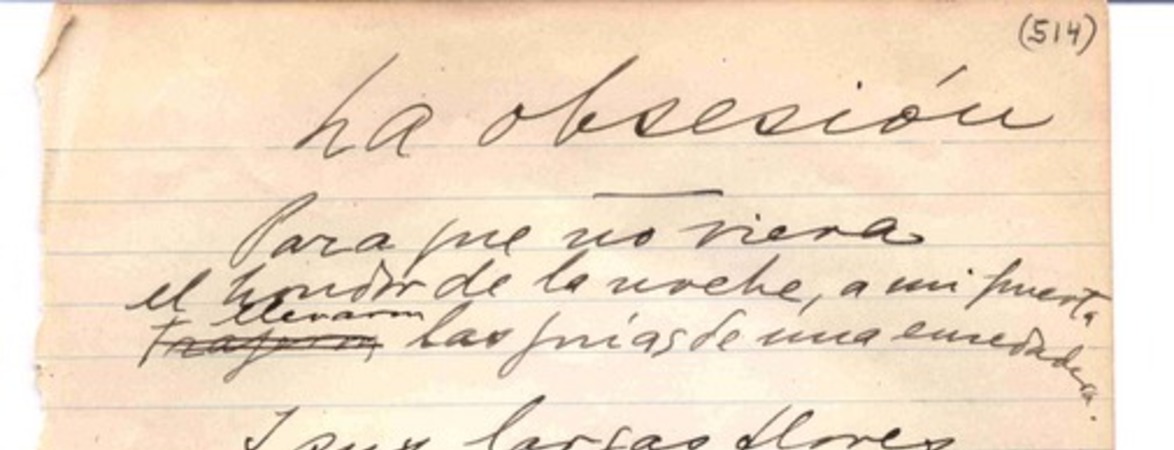 (514)
La obsesión
Para que no viera
el hondor de la noche, a mi puerta
llevaron
trajeron las guías de una enredadera.
I sus largas flores